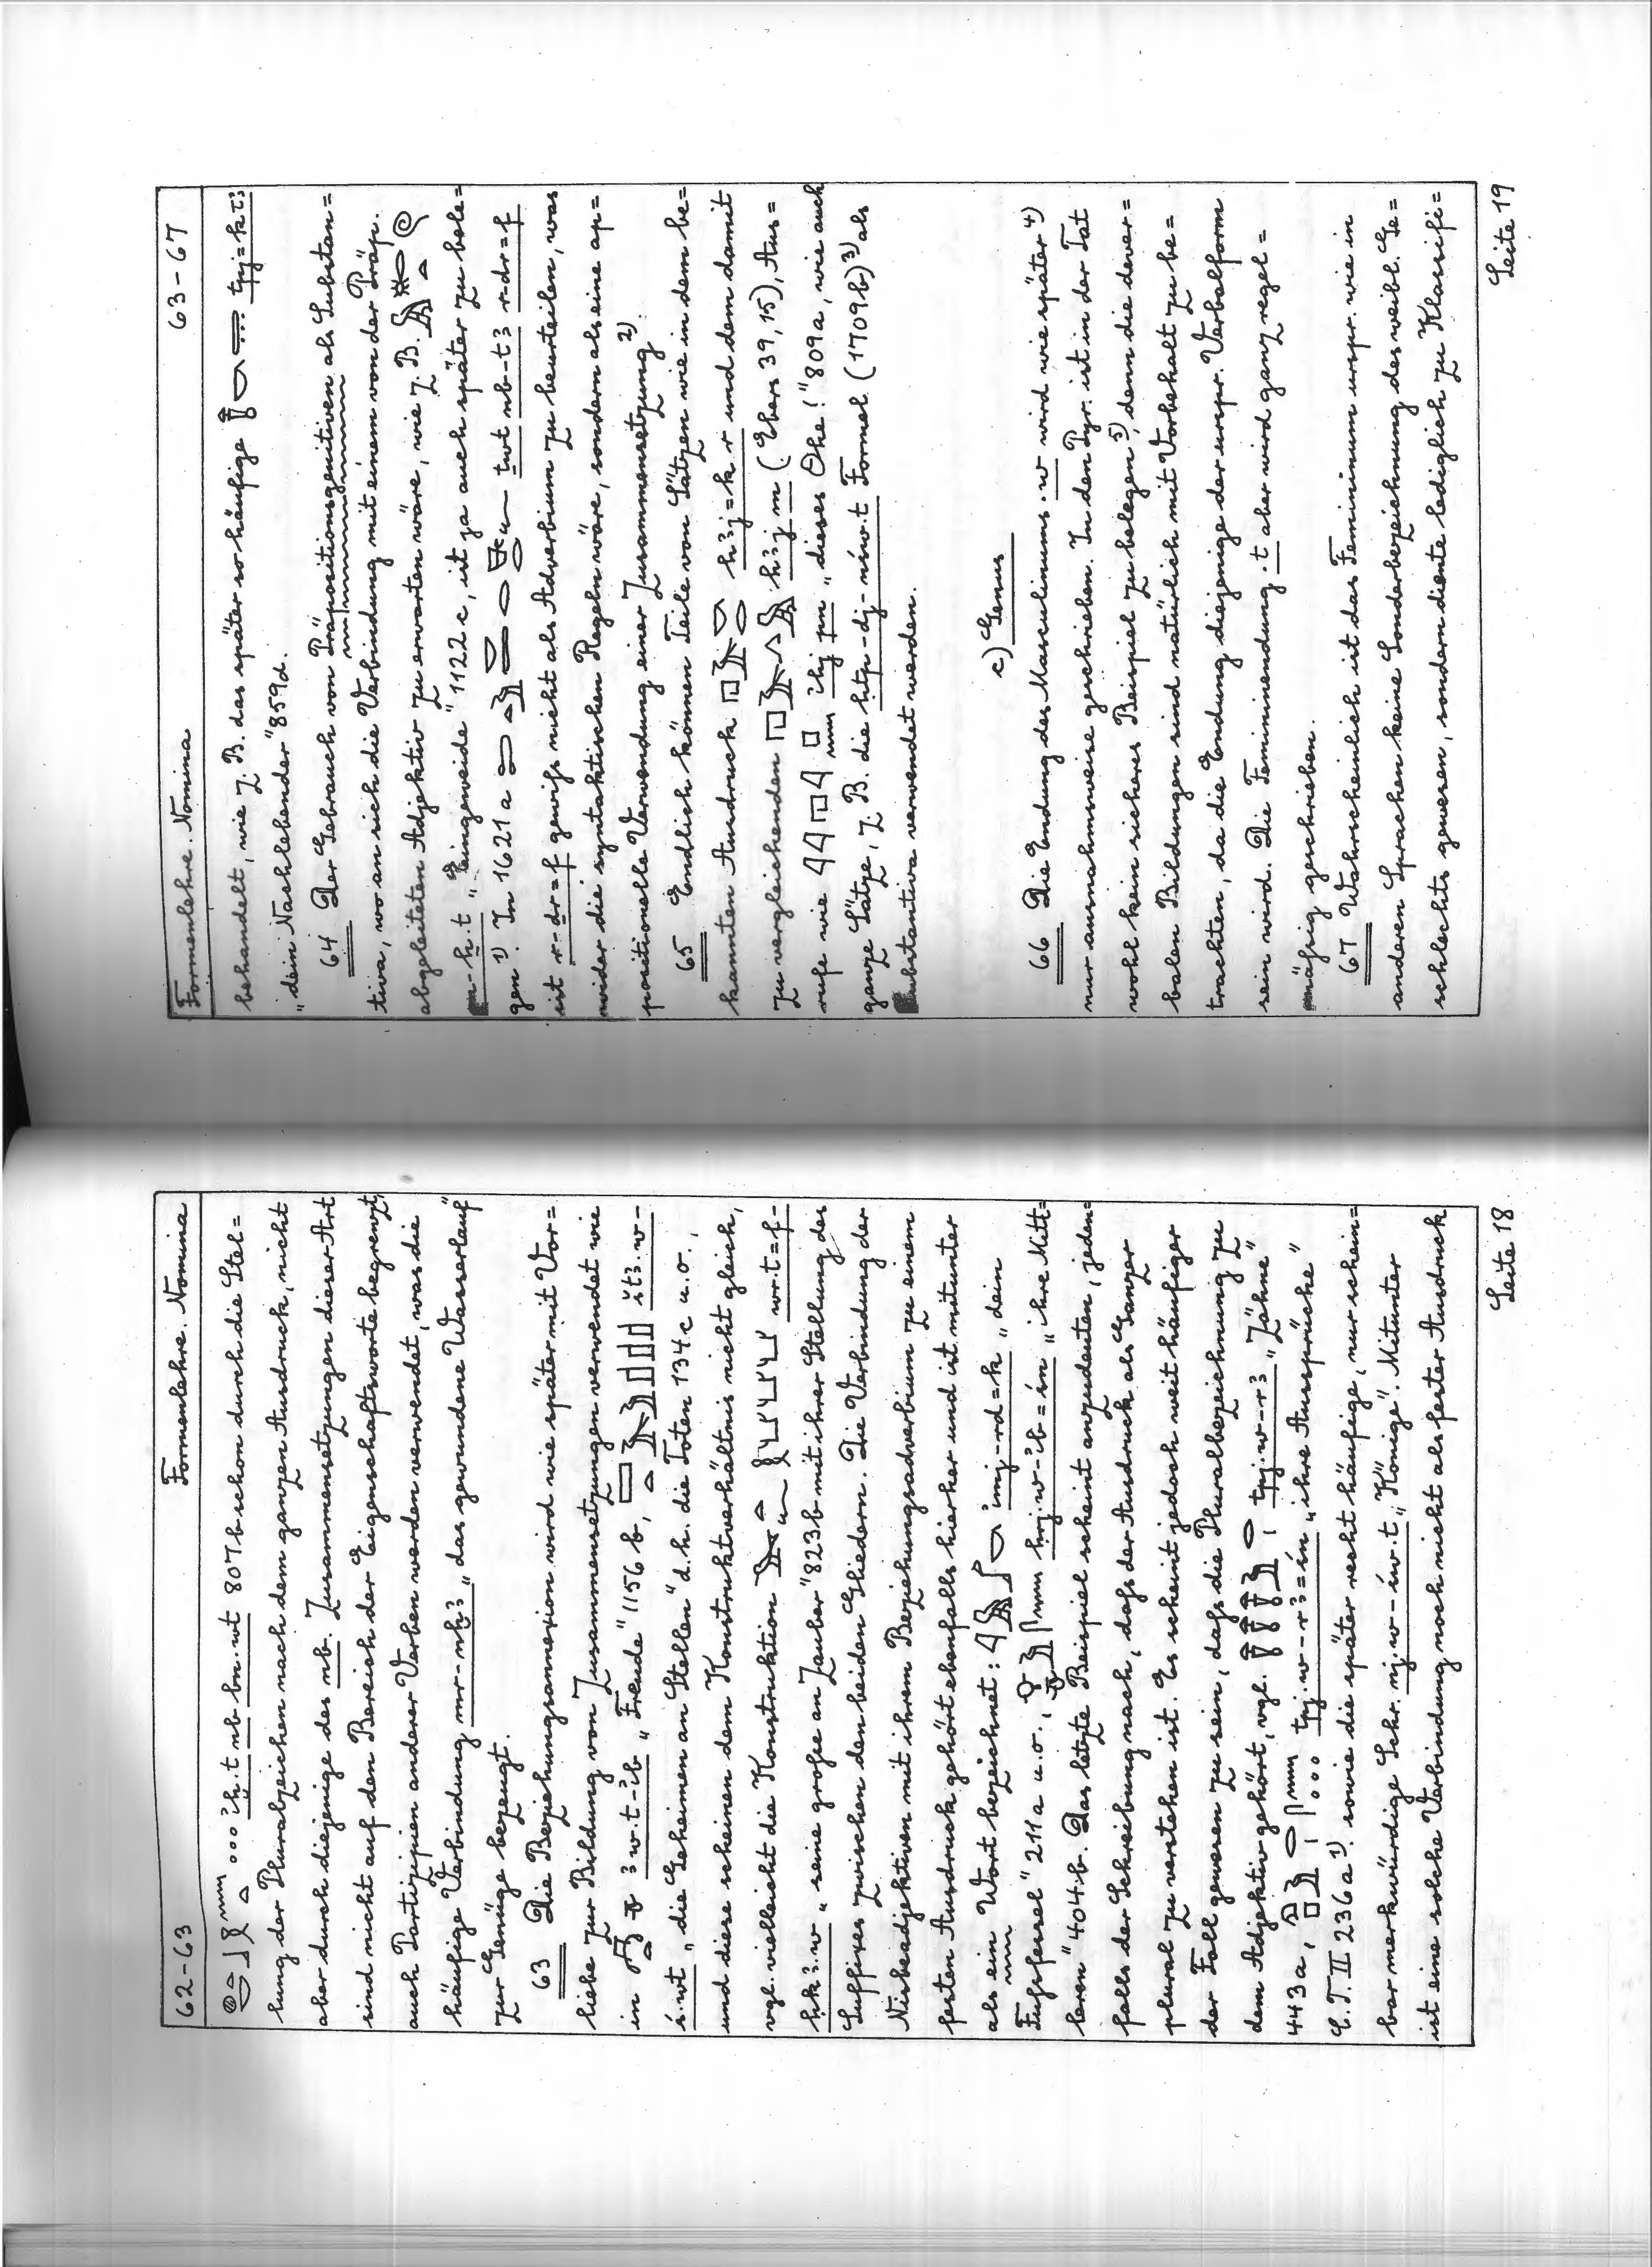 62-63 Formenlehre. Nomina
ꜣḫ.t nb bn.wt 807 b schon durch die Stel=
lung der Pluralzeichen nach dem ganzen Ausdruck, nicht
aber durch diejenige des nb. Zusammensetzungen dieser Art
sind nicht auf den Bereich der Eigenschaftsworte begrenzt,
auch Partizipien anderer Verben werden verwendet, was die
häufige Verbindung mr-nbꜣ „das gewundene Wasserlauf“
zur Genüge bezeugt.
63 Die Beziehungsannexion wird wie später mit Vor=
liebe zur Bildung von Zusammensetzungen verwendet wie
in ꜣw.t-ib „Freude“ 1156 b, štꜣ.w-
ś.wt „die Geheimen an Stellen“ d.h. die Toten 134 c u.o.,
und diese scheinen dem Konstruktverhältnis nicht gleich,
vgl. vielleicht die Konstruktion wr.t=f-
ḥkꜣ.w „seine grosse an Zauber“ 823 b mit ihrer Stellung des
Suffixes zwischen den beiden Gliedern. Die Verbindung der
Nisbeadjektiven mit ihrem Beziehungsadverbium zu einem
festen Ausdruck gehört ebenfalls hierher und ist mitunter
als ein Wort bezeichnet: imj-rd=k „dein
Fußfessel“ 211 a u.o., ḥrj.w-ib=śn „ihre Mitt=
leren“ 404 b. Das letzte Beispiel scheint anzudeuten, jeden=
falls der Schreibung nach, daß der Ausdruck als Ganzer
plural zu verstehen ist. Es scheint jedoch weit häufiger
der Fall gewesen zu sein, daß die Pluralbezeichnung zu
dem Adjektiv gehört, vgl. tpj.w-rꜣ „Zähne“
443 a, tpj.w-rꜣ=śn „ihre Aussprüche“
C.T. II 236 a 1). sowie die später recht häufige, nur schein=
bar merkwürdige Schr. nj.w-św.t „Könige“. Mitunter
ist eine solche Verbindung noch nicht als fester Ausdruck
Seite 18
Formenlehre. Nomina 63-67
behandelt, wie z.B. das später so häufige tpj=k tꜣ
„dein Nachlebender“ 859 d.
64 Der Gebrauch von Präpositionsgenitiven als Substan=
tiva, wo an sich die Verbindung mit einem von der Präp.
abgeleiteten Adjektiv zu erwarten wäre, wie z.B.
m-ẖ.t „Eingeweide“ 1122 c, ist ja auch später zu bele=
gen 1). In 1621 a twt nb-tꜣ r-ḏr=f
ist r-ḏr=f gewiß nicht als Adverbium zu beurteilen, was
wider die syntaktischen Regeln wäre, sondern als eine ap=
positionelle Verwendung einer Zusammensetzung 2).
65 Endlich können Teile von Sätzen wie in dem be=
kannten Ausdruck hꜣj=k r und dem damit
zu vergleichenden hꜣj m (Ebers 39, 15), Aus=
rufe wie ihj pn „dieses Ohe!“ 809 a, wie auch
ganze Sätze, z.B. die ḥtp-dj-nśw.t Formel (1709 b) 3) als
Substantiva verwendet werden.
c) Genus
66 Die Endung des Masculinums .w wird wie später 4)
nur ausnahmsweise geschrieben. In den Pyr. ist in der Tat
wohl kein sicheres Beispiel zu belegen 5), denn die dever=
balen Bildungen sind natürlich mit Vorbehalt zu be=
trachten, da die Endung diejenige der urspr. Verbalform
sein wird. Die Femininendung .t aber wird ganz regel=
mäßig geschrieben.
67 Wahrscheinlich ist das Femininum urspr. wie in
anderen Sprachen keine Sonderbezeichnung des weibl. Ge=
schlechts gewesen, sondern diente lediglich zu Klassifi=
Seite 19